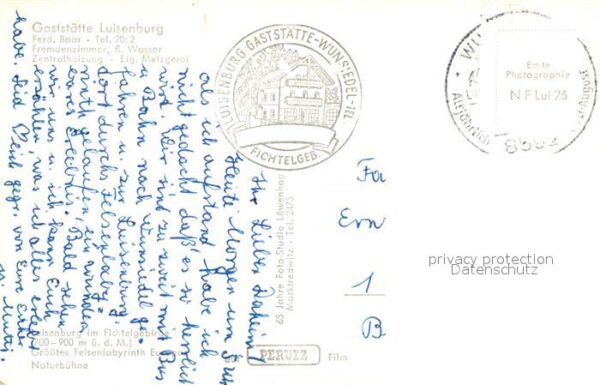 Gaststätte Luisenburg
Ferd. Baar - Tel. 20/2
Fremdenzimmer, fl. Wasser
Zentralheizung - Eig. Metzgerei
LUISENBURG GASTSTÄTTE-WUNSIEDEL-TEL
FICHTELGEB.
Echte
Photographie
N F Lui 26
8592
Ihr Lieben Daheim!
Heute Morgen um 7 Uhr
als ich aufstand habe ich
nicht gedacht daß es so herrlich
wird. Wir sind zu zweit mit Bus
u. Bahn nach Wunsiedel ge-
fahren u. zur Luisenburg.
dort durchs Felsenlaby-
rinth gelaufen, ein wunder-
bares Erlebnis. Bald sehen
wir uns u. ich kann Euch
erzählen, was ich alles erlebt
habe. Seid herzl. gegr. von Eurer
Mutti
65 Jahre Foto-Studio Löwenhag
Marktredwitz - Tel. 2475
Fa
Ern
1
B
privacy protection
Datenschutz
Luisenburg im Fichtelgebirge
700-900 m (ü. d. M.)
Größtes Felsenlabyrinth Europas
Naturbühne
auf PERUTZ Film